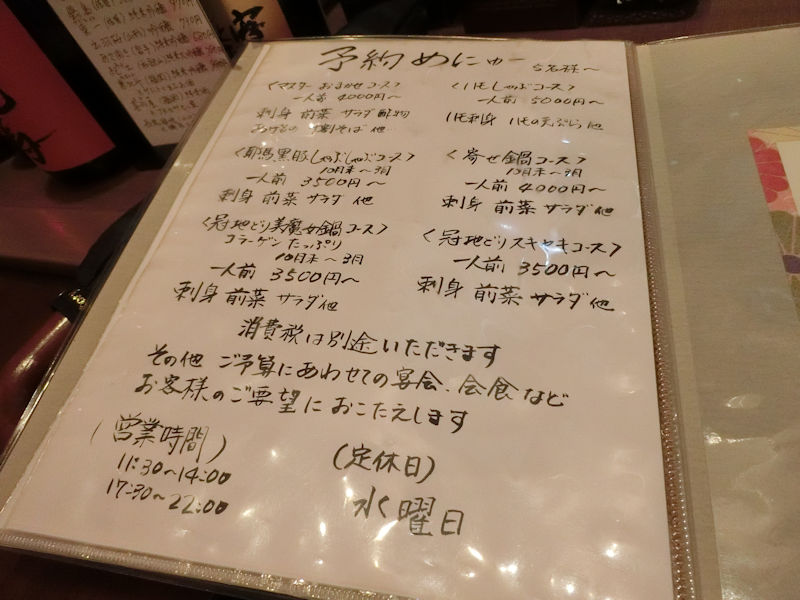 予約めにゅー 5名様〜
〈マスター おまかせコース〉
一人前 4000円〜
刺身 前菜 サラダ 酢物
そば 他
〈ハモしゃぶコース〉
一人前 5000円〜
ハモ刺身 ハモの天ぷら 他
〈耶馬黒豚しゃぶしゃぶコース〉
10月末〜3月
一人前 3500円〜
刺身 前菜 サラダ 他
〈寄せ鍋コース〉
10月末〜3月
一人前 4000円〜
刺身 前菜 サラダ 他
〈冠地どり美魔女鍋コース〉
コラーゲンたっぷり
10月末〜3月
一人前 3500円〜
刺身 前菜 サラダ他
〈冠地どりスキヤキコース〉
一人前 3500円〜
刺身 前菜 サラダ他
消費税は別途いただきます
その他 ご予算にあわせての宴会、会食など
お客様のご要望におこたえします
(営業時間)
11:30〜14:00
17:30〜22:00
(定休日)
水曜日